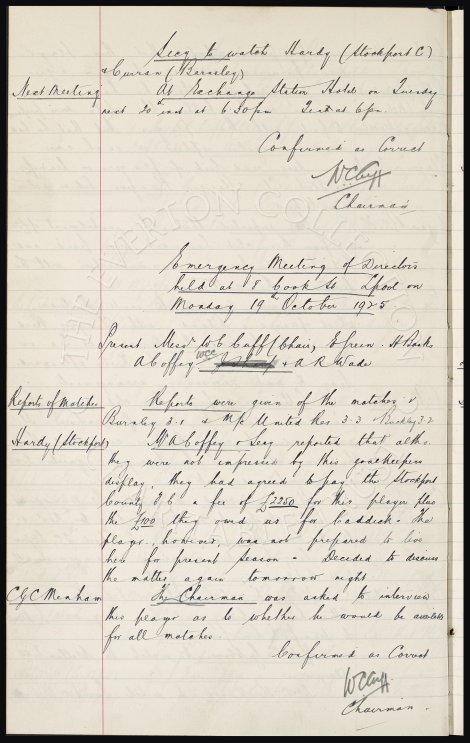 Secy to watch Hardy (Stockport C)
& Curran (Barnsley)
Next Meeting At Exchange Station Hotel on Tuesday
next 20th inst at 6.30pm Tea at 6pm.
Confirmed as Correct
WCCuff
Chairman
THE EVERTON COLLECTION
Emergency Meeting of Directors
held at 8 Cook St Lpool on
Monday 19th October 1925
Present Messrs W C Cuff (Chair) E Green H Banks
A Coffey WCC & A R Wade
Reports of Matches Reports were given of the matches v
Burnley 3.1 & M/c United Res 3.3 Buckley 3.2
Hardy (Stockport) Mr A Coffey & Secy reported that altho
they were not impressed by this goalkeepers
display, they had agreed to pay the Stockport
County F.C. a fee of £2250 for this player plus
the £100 they owed us for Caddick. The
player, however, was not prepared to live
here for present season. Decided to discuss
the matter again tomorrow night
C G C Menham The Chairman was asked to interview
this player as to whether he would be available
for all matches.
Confirmed as Correct
WCCuff
Chairman.